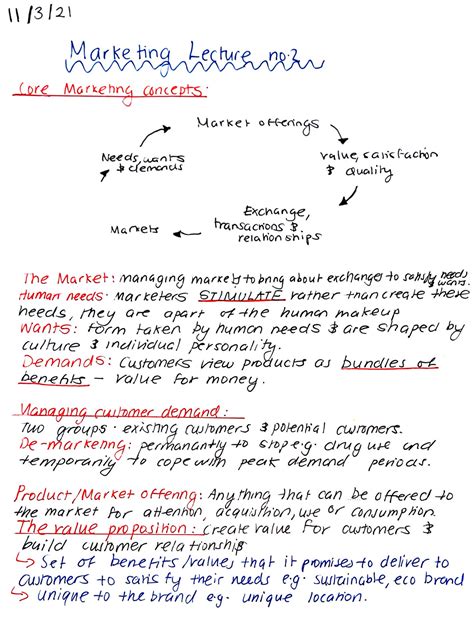 11/3/21
Marketing Lecture no.2
Core Marketing concepts:
Market offerings
Needs, wants
& demands
value, satisfaction
& quality
Exchange,
transactions &
relationships
Markets
The Market: managing markets to bring about exchanges to satisfy needs & wants.
Human needs: Marketers STIMULATE rather than create these
needs, they are apart of the human makeup
Wants: form taken by human needs & are shaped by
culture & individual personality.
Demands: Customers view products as bundles of
benefits – value for money.
Managing customer demand:
Two groups: existing customers & potential customers.
De-marketing: permanantly to stop e.g. drug use and
temporarily to cope with peak demand periods.
Product/Market offering: Anything that can be offered to
the market for attention, acquisition, use or consumption.
The value proposition: create value for customers &
build customer relationships
Set of benefits/values that it promises to deliver to
customers to satisfy their needs e.g. sustainable, eco brand
unique to the brand e.g. unique location.